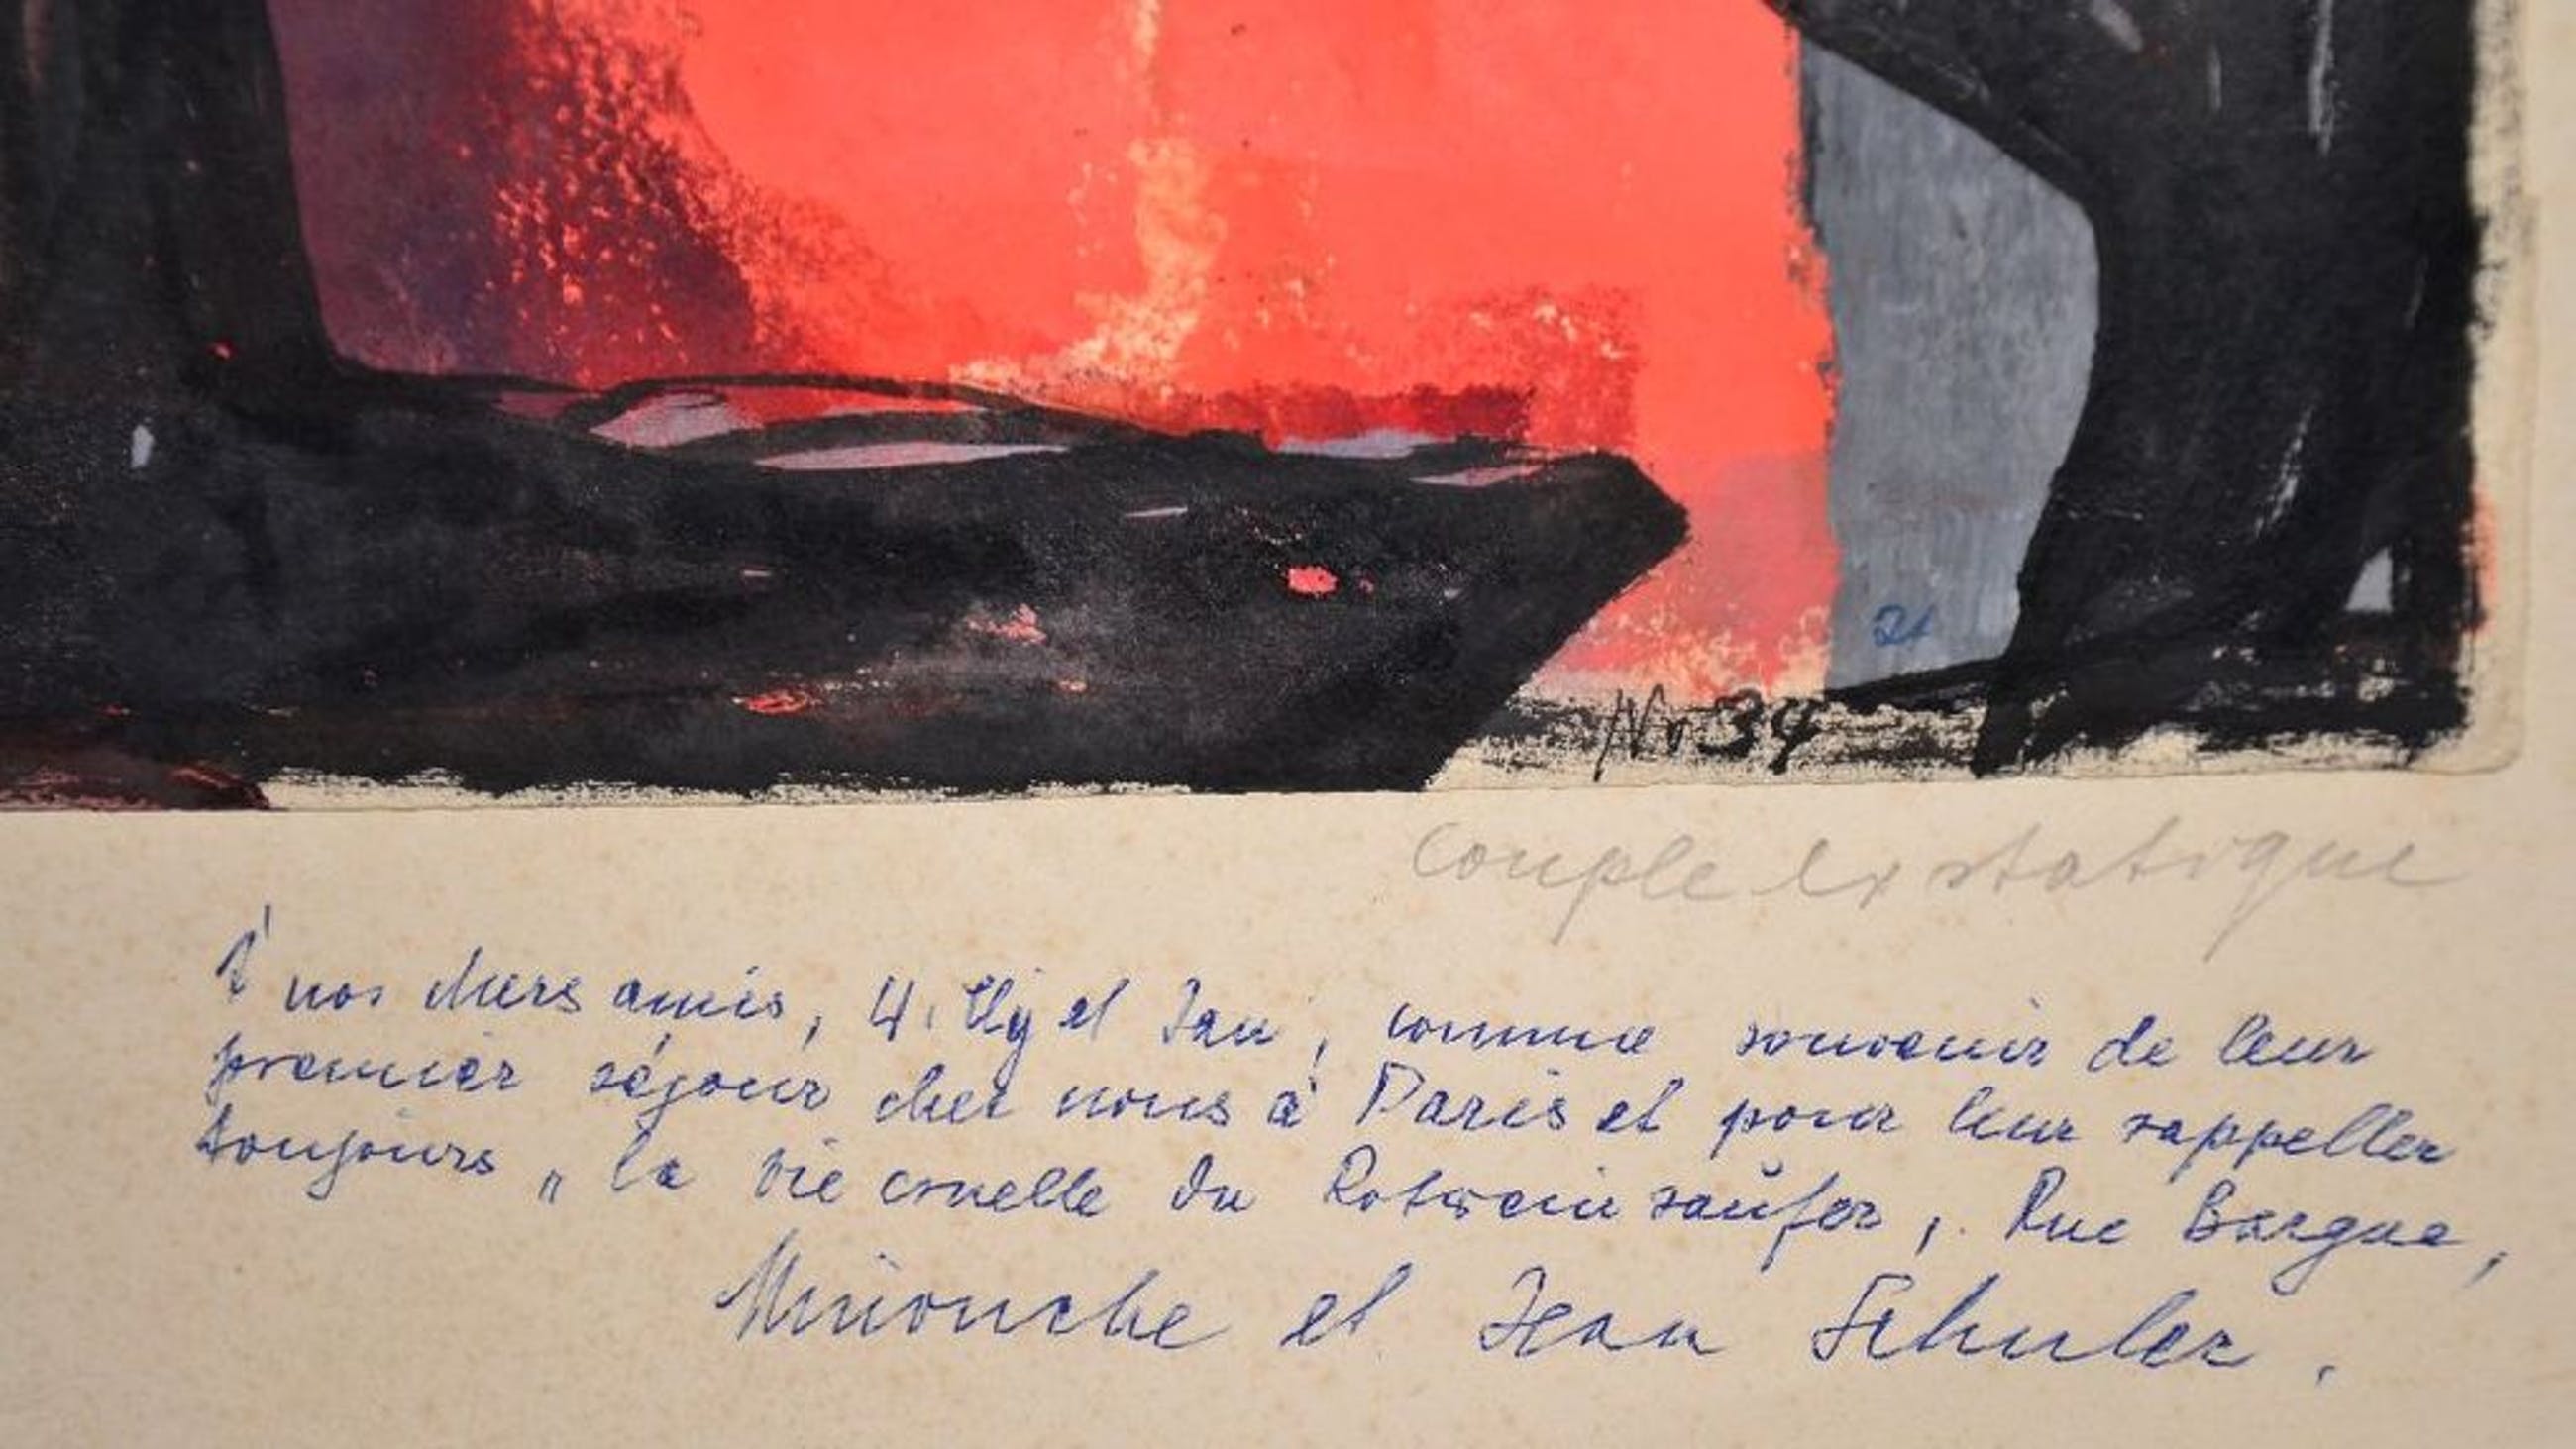 21
Nr 34
Couple exstatique
À nos chers amis, Willy et Jan, comme souvenir de leur
premier séjour chez nous à Paris et pour leur rappeller
toujours „la vie cruelle du Rotweinsaüfer, Rue Bargue,
Minouche et Jean Schuler.